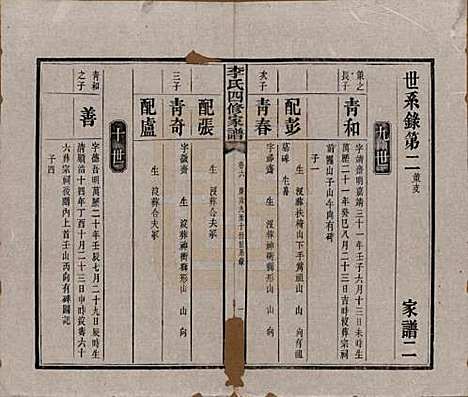 世系錄第二 董支
家譜二
九世
董之長子
青和
字清齋明嘉靖三十一年壬子六月十三日未時生
萬歷二十一年癸巳八月二十三日吉時歿葬宗祠
前霧山子山午向有碑
子一
配彭
生 歿葬扶椅山下手蔦頭山 向有
墓碑 生善
次子
青春
字 齋 生 歿葬神衝獅形山 山 向
配張
生 歿葬合夫冢
三子
青奇
字 齋 生 歿葬神衝獅形 山 山 向
配盧
生 歿葬合夫冢
李氏四修家譜
卷六
一
十世
青和之子
善
字 吾明萬歷二十年壬辰七月二十九日辰時生
清順治十四年丁酉十月二十三日申時歿壽六十
六葬宗祠右上首壬山丙向有碑圖誌
子四